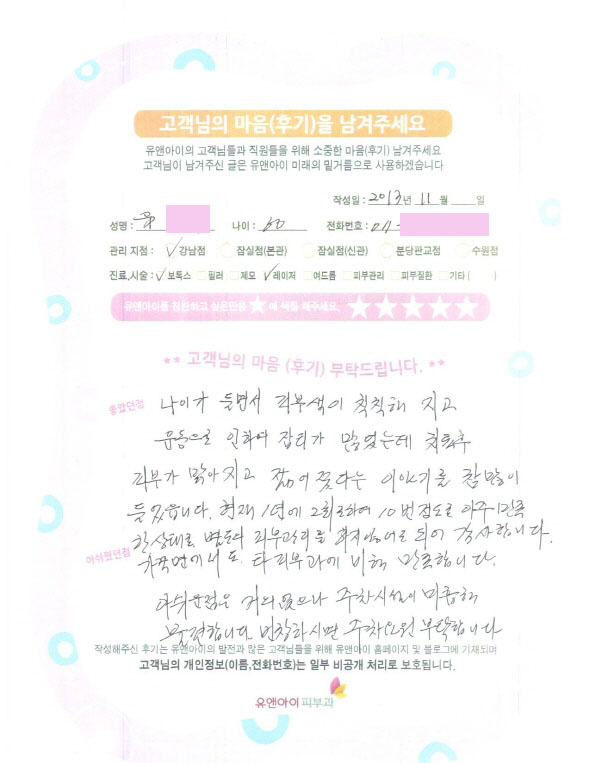 고객님의 마음(후기)을 남겨주세요
유앤아이의 고객님들과 직원들을 위해 소중한 마음(후기) 남겨주세요
고객님이 남겨주신 글은 유앤아이 미래의 밑거름으로 사용하겠습니다
작성일 : 2013년 11월 일
성명 : 나이 : 60 전화번호 : 011-
관리 지점 : ✓강남점 잠실점(본관) 잠실점(신관) 분당판교점 수원점
진료,시술 : ✓보톡스 필러 제모 ✓레이저 여드름 피부관리 피부질환 기타 ( )
유앤아이를 칭찬하고 싶은만큼 ★에 색칠 해주세요. ★★★★★
** 고객님의 마음 (후기) 부탁드립니다. **
좋았던점
나이가 들면서 피부색이 칙칙해 지고
운동으로 인하여 잡티가 많았는데 치료후
피부가 맑아지고 젊어 졌다는 이야기를 참 많이
듣었습니다. 현재 1년에 2회로하여 10번 정도로 아주 만족
한 상태로 별도의 피부관리를 하지않아도 되어 감사합니다.
아쉬웠던점
가격면에서도 타 피부과에 비해 만족합니다.
아쉬운점은 거의 없으나 주차시설이 미흡해
불편합니다. 번창하시면 주차요원 부탁합니다
작성해주신 후기는 유앤아이의 발전과 많은 고객님들을 위해 유앤아이 홈페이지 및 블로그에 기재되며
고객님의 개인정보(이름,전화번호)는 일부 비공개 처리로 보호됩니다.
유앤아이피부과